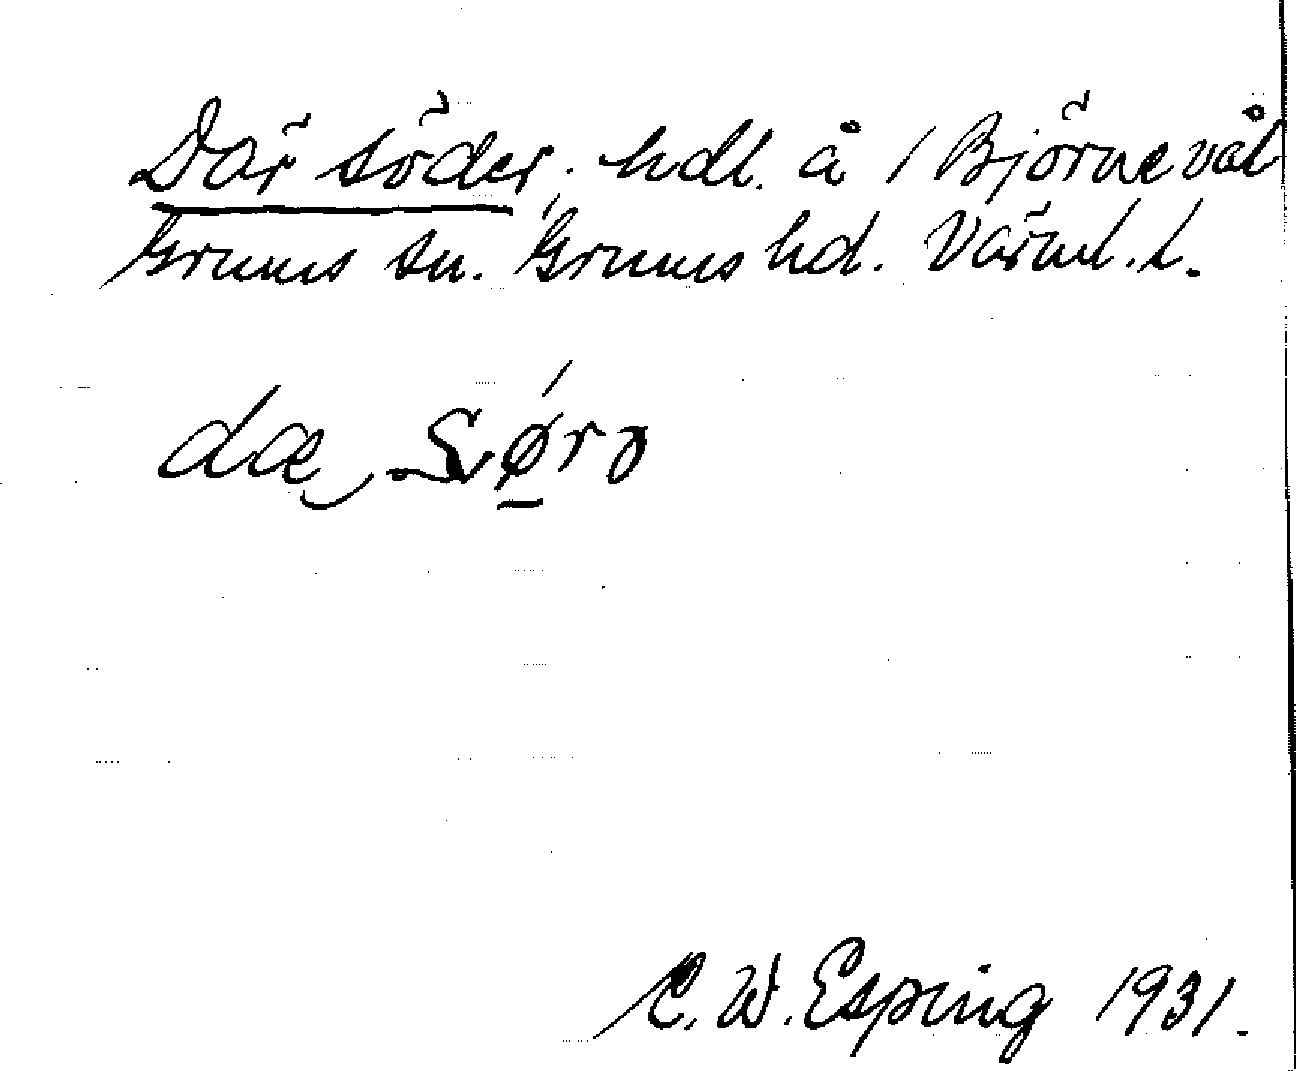 Där söder, hdl. å 1 Björnevål
Grums sn. Grums hd. Värml. l.
dæ sø̱ro
C. W. Esping 1931.